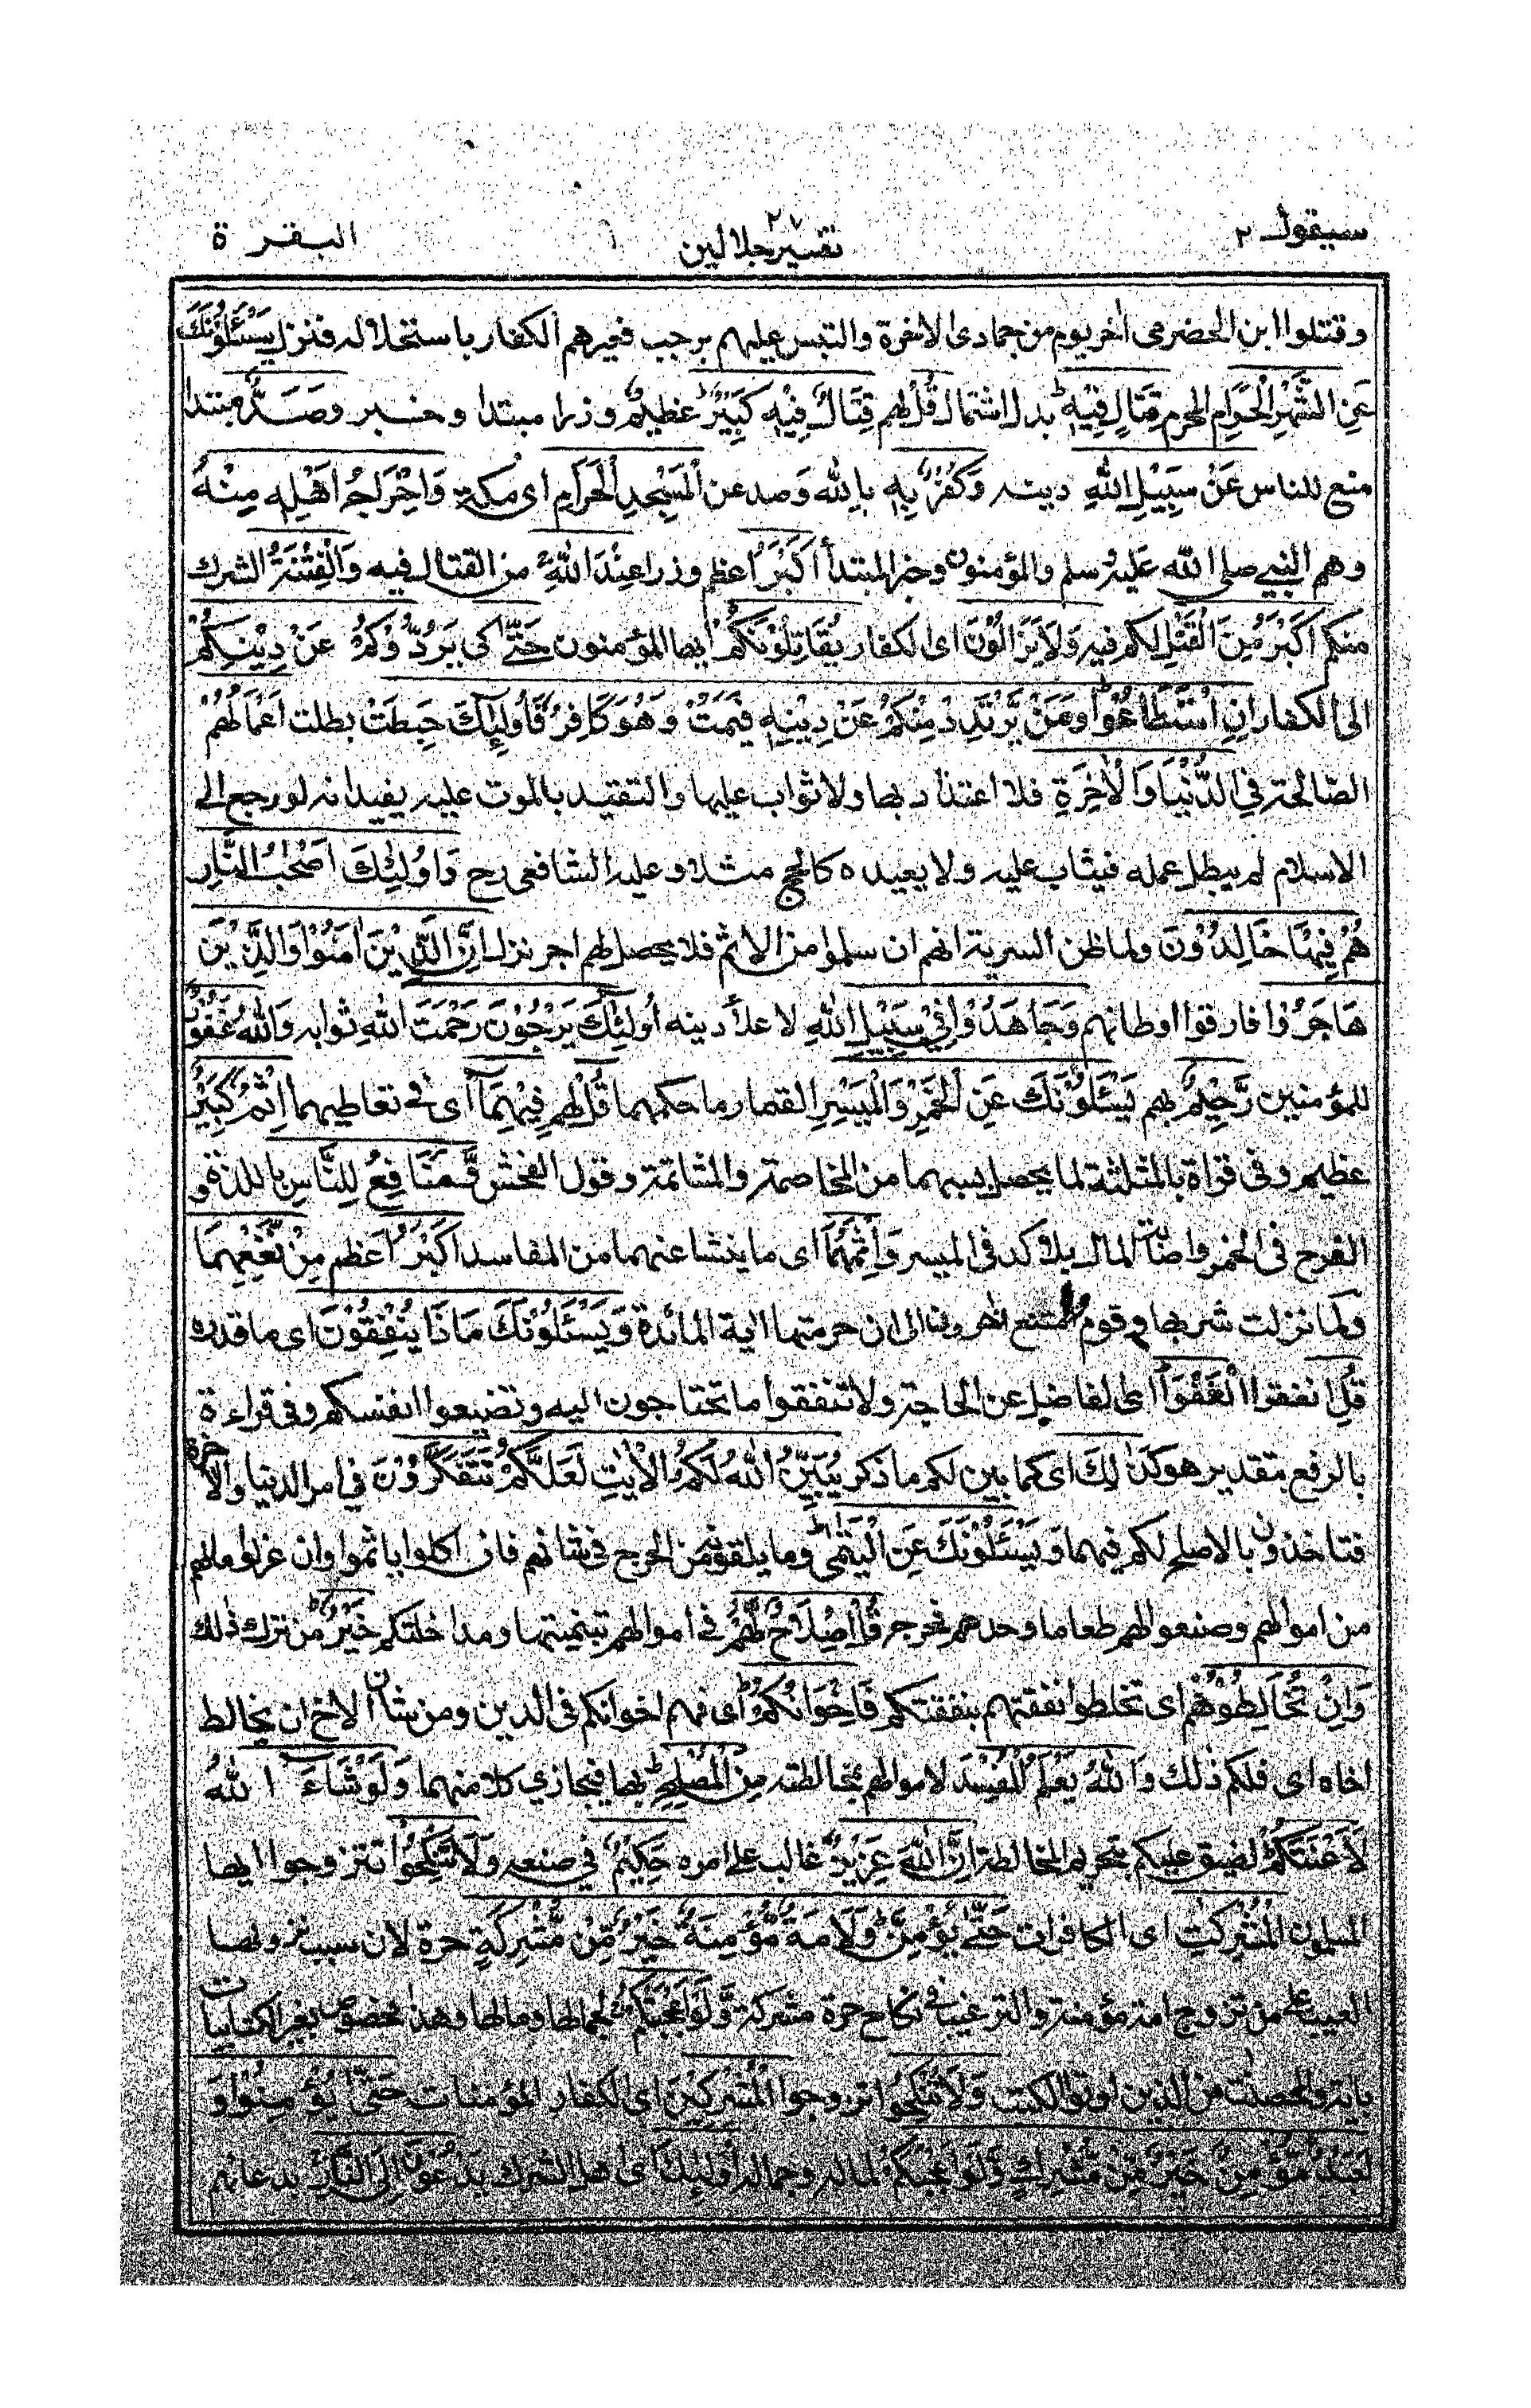 سيقول ٢
تفسير جلالين ٢٧
البقرة
وقتلوا ابن الحضرمى اخر يوم من جمادى الاخرة والتبس عليهم برجب فعيرهم الكفار باستحلاله فنزل يَسْئَلُوْنَكَ
عَنِ الشَّهْرِ الْحَرَامِ المحرم قِتَالٍ فِيْهِ بدل اشتمال قُلْ لهم قِتَالٌ فِيْهِ كَبِيْرٌ عظيم وزرا مبتدا وخبر وَصَدٌّ مبتدا
منع للناس عَنْ سَبِيْلِ اللهِ دينه وَكُفْرٌ بِهٖ بالله وَصد عن الْمَسْجِدِ الْحَرَامِ اى مكة وَاِخْرَاجُ اَهْلِهٖ مِنْهُ
وهم النبي صلى الله عليه وسلم والمؤمنون وخبر المبتدأ اَكْبَرُ اعظم وزرا عِنْدَ اللهِ من القتال فيه وَالْفِتْنَةُ الشرك
منكم اَكْبَرُ مِنَ الْقَتْلِ لكم فيه وَلَا يَزَالُوْنَ اى الكفار يُقَاتِلُوْنَكُمْ ايها المؤمنون حَتّٰى كى يَرُدُّوْكُمْ عَنْ دِيْنِكُمْ
الى الكفار اِنِ اسْتَطَاعُوْا وَمَنْ يَّرْتَدِدْ مِنْكُمْ عَنْ دِيْنِهٖ فَيَمُتْ وَهُوَ كَافِرٌ فَاُولٰٓئِكَ حَبِطَتْ بطلت اَعْمَالُهُمْ
الصالحة فِي الدُّنْيَا وَالْاٰخِرَةِ فلا اعتداد بها ولا ثواب عليها والتقييد بالموت عليه يفيد انه لو رجع الى
الاسلام لم يبطل عمله فيثاب عليه ولا يعيده كالحج مثلا وعليه الشافعى رح وَاُولٰٓئِكَ اَصْحٰبُ النَّارِ
هُمْ فِيْهَا خَالِدُوْنَ ولما ظن السرية انهم ان سلموا من الاثم فلا يحصل لهم اجر نزل اِنَّ الَّذِيْنَ اٰمَنُوْا وَالَّذِيْنَ
هَاجَرُوْا فارقوا اوطانهم وَجَاهَدُوْا فِيْ سَبِيْلِ اللهِ لاعلاء دينه اُولٰٓئِكَ يَرْجُوْنَ رَحْمَتَ اللهِ ثوابه وَاللهُ غَفُوْرٌ
للمؤمنين رَّحِيْمٌ بهم يَسْئَلُوْنَكَ عَنِ الْخَمْرِ وَالْمَيْسِرِ القمار ما حكمهما قُلْ لهم فِيْهِمَا اى فى تعاطيهما اِثْمٌ كَبِيْرٌ
عظيم وفى قراءة بالمثلثة لما يحصل بسببهما من المخاصمة والمشاتمة وقول الفحش وَّمَنَافِعُ لِلنَّاسِ باللذة و
الفرح فى الخمر واصابة المال بلا كد فى الميسر وَاِثْمُهُمَا اى ما ينشا عنهما من المفاسد اَكْبَرُ اعظم مِنْ نَّفْعِهِمَا
ولما نزلت شربها قوم وامتنع اخرون الى ان حرمتها اية المائدة وَيَسْئَلُوْنَكَ مَاذَا يُنْفِقُوْنَ اى ما قدره
قُلِ انفقوا الْعَفْوَ اى الفاضل عن الحاجة ولا تنفقوا ما تحتاجون اليه وتضيعوا انفسكم وفى قراءة
بالرفع بتقدير هو كَذٰلِكَ اى كما بين لكم ما ذكر يُبَيِّنُ اللهُ لَكُمُ الْاٰيٰتِ لَعَلَّكُمْ تَتَفَكَّرُوْنَ فِي امر الدنيا والاخرة
فتاخذون بالاصلح لكم فيهما وَيَسْئَلُوْنَكَ عَنِ الْيَتٰمٰى وما يلقونه من الحرج فى شانهم فان اكلوا ياثموا وان عزلوا مالهم
من اموالهم وصنعوا لهم طعاما وحدهم فحرج قُلْ اِصْلَاحٌ لَّهُمْ فى اموالهم بتنميتها ومداخلتكم خَيْرٌ من ترك ذلك
وَاِنْ تُخَالِطُوْهُمْ اى تخلطوا نفقتهم بنفقتكم فَاِخْوَانُكُمْ اى فهم اخوانكم فى الدين ومن شان الاخ ان يخالط
اخاه اى فلكم ذلك وَاللهُ يَعْلَمُ الْمُفْسِدَ لاموالهم بمخالطته مِنَ الْمُصْلِحِ بها فيجازي كلا منهما وَلَوْ شَاءَ اللهُ
لَاَعْنَتَكُمْ لضيق عليكم بتحريم المخالطة اِنَّ اللهَ عَزِيْزٌ غالب على امره حَكِيْمٌ فى صنعه وَلَا تَنْكِحُوا تتزوجوا ايها
المسلمون الْمُشْرِكٰتِ اى الكافرات حَتّٰى يُؤْمِنَّ وَلَاَمَةٌ مُّؤْمِنَةٌ خَيْرٌ مِّنْ مُّشْرِكَةٍ حرة لان سبب نزولها
العيب على من تزوج امة مؤمنة والترغيب فى نكاح حرة مشركة وَّلَوْ اَعْجَبَتْكُمْ لجمالها ومالها وهذا مخصوص بغير الكتابيات
باية والمحصنت من الذين اوتوا الكتب وَلَا تُنْكِحُوا تزوجوا الْمُشْرِكِيْنَ اى الكفار المؤمنات حَتّٰى يُؤْمِنُوْا وَ
لَعَبْدٌ مُّؤْمِنٌ خَيْرٌ مِّنْ مُّشْرِكٍ وَّلَوْ اَعْجَبَكُمْ لماله وجماله اُولٰٓئِكَ اى اهل الشرك يَدْعُوْنَ اِلَى النَّارِ بدعائهم